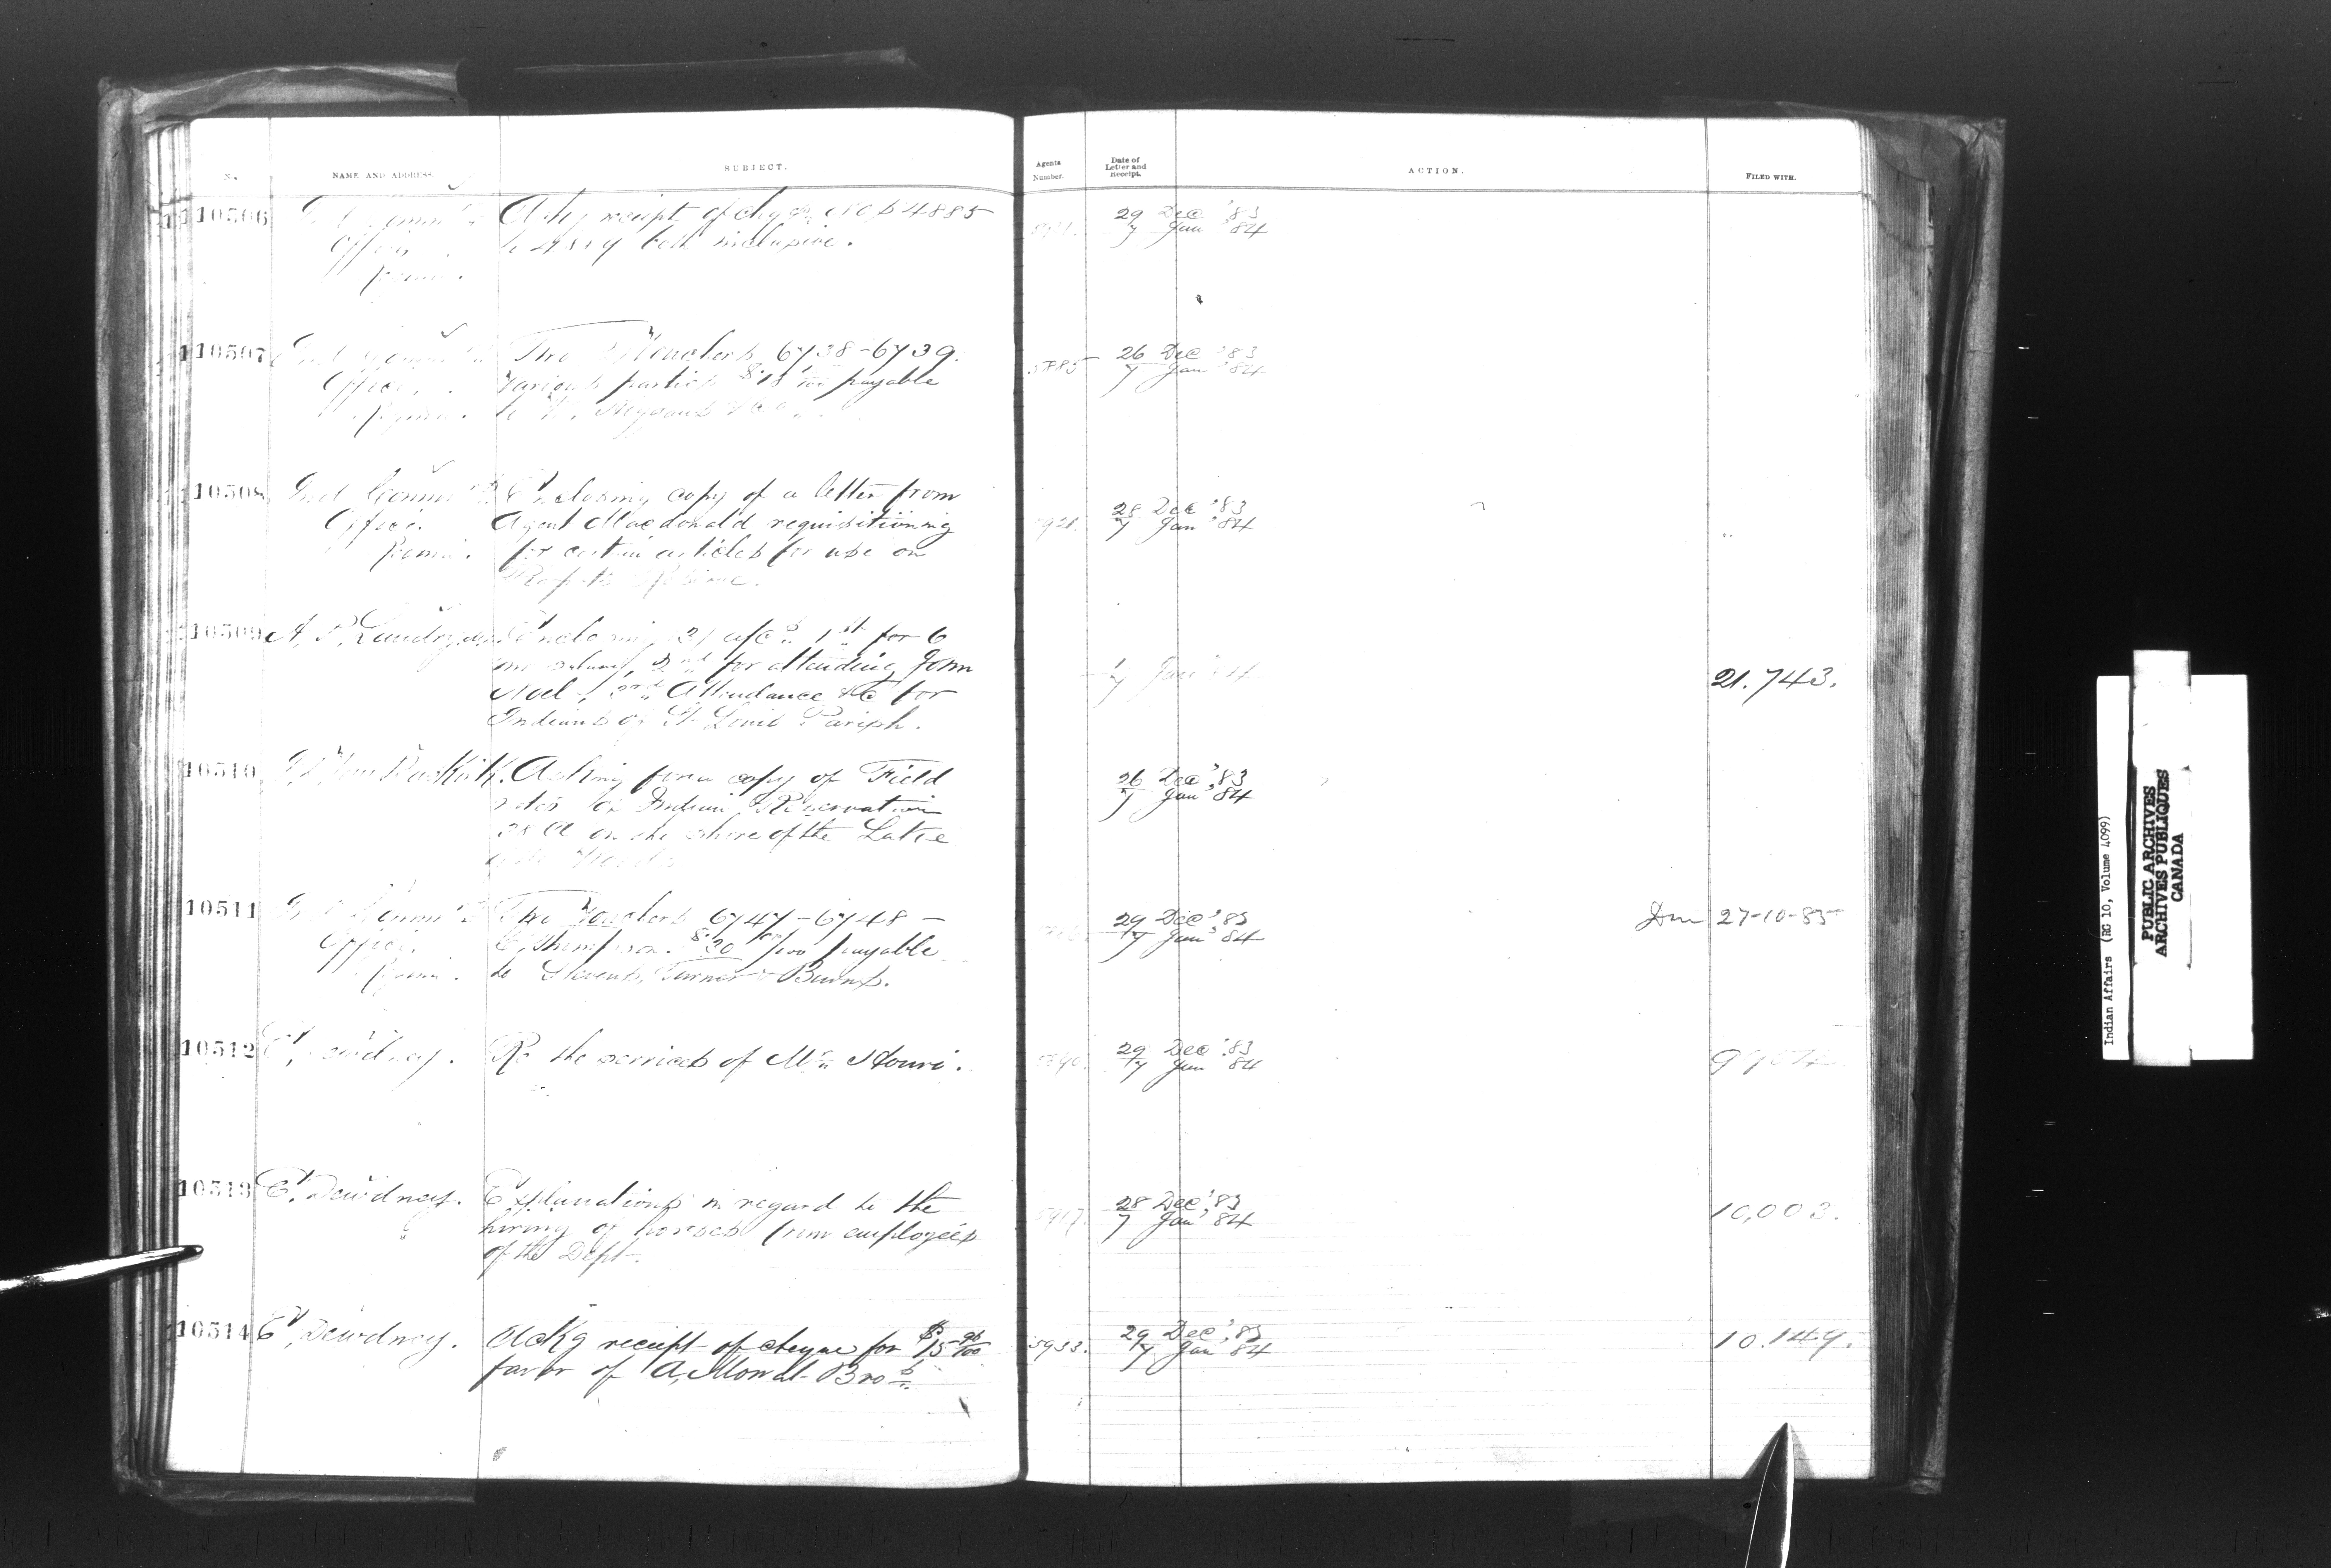 No.
NAME AND ADDRESS.
SUBJECT.
Agents
Number.
Date of
Letter and
Receipt.
ACTION.
FILED WITH.
10506
Ackg receipt of chqs Nos 4885
Office
both inclusive.
29 Dec '83
7 Jan '84
10507
Two Vouchers 6738-6739.
Office,
Various parties $18 payable
Regina.
to
5885
26 Dec '83
7 Jan '84
10508
Ind Commrs
Enclosing copy of a letter from
Office.
Agent Macdonald requisitioning
Regina.
for certain articles for use on
Reserve.
28 Dec '83
7 Jan '84
10509
A. P. Landry,
Enclosing 3 a/cs 1st for 6
mos salary, 2nd for attending John
Noel, 3rd Attendance &c for
Indians of St Louis Parish.
7 Jan '84
21.743.
10510
Asking for a copy of Field
notes of Indian Reservation
38A on the shore of the Lake
of the Woods
26 Dec '83
7 Jan '84
10511
Two Vouchers 6747-6748-
Office.
C. Thompson. $20 /100 payable
Regina.
to Stevens, Turner & Burns.
29 Dec '83
7 Jan '84
27-10-85
10512
E. Dewdney.
Re the services of Mr Houri.
29 Dec '83
7 Jan '84
10513
E. Dewdney.
Explanations in regard to the
hiring of horses from employees
of the Dept.
28 Dec '83
7 Jan '84
10,003.
10514
E. Dewdney.
Ackg receipt of cheque for $15 96/100
favor of A. Mowat Bros.
5933.
29 Dec '83
7 Jan '84
10.149.
Indian Affairs (RG 10, Volume 4099)
PUBLIC ARCHIVES
ARCHIVES PUBLIQUES
CANADA